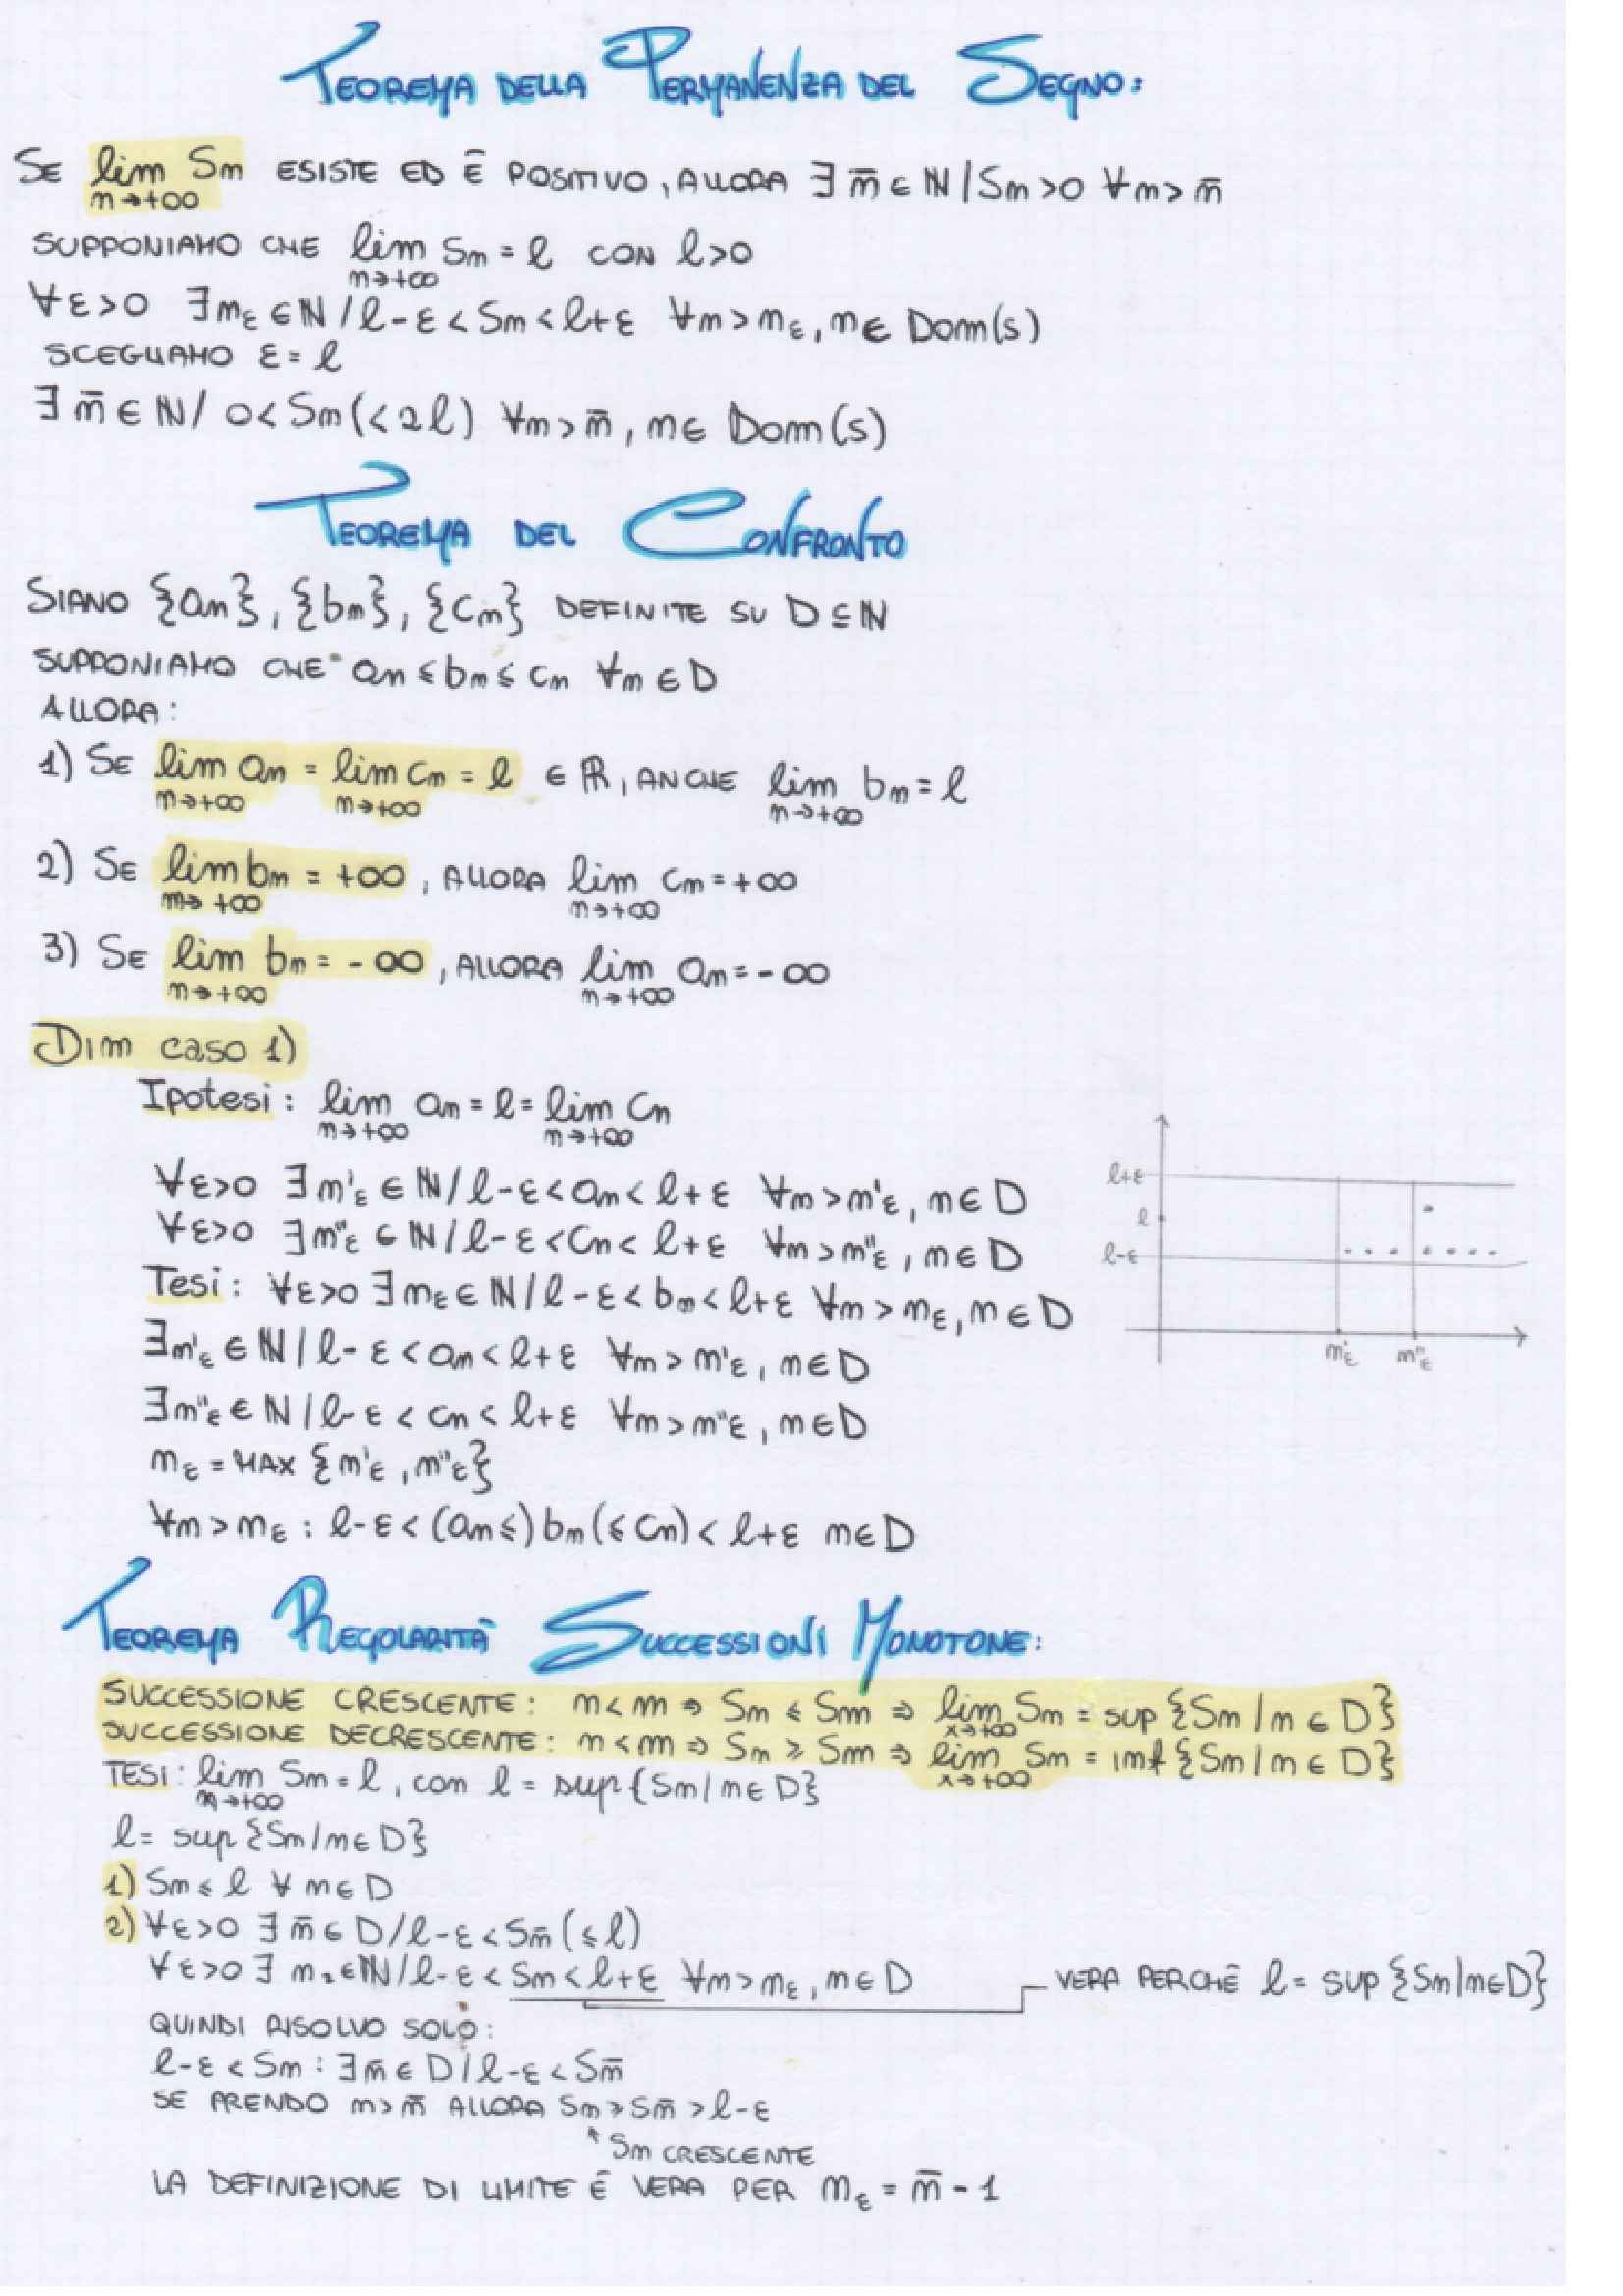 TEOREMA DELLA PERMANENZA DEL SEGNO:
SE lim Sn ESISTE ED È POSITIVO, ALLORA ∃ n̄ ∈ ℕ / Sn > 0 ∀n > n̄
n→+∞
SUPPONIAMO CHE lim Sn = l CON l>0
n→+∞
∀ε>0 ∃nε ∈ ℕ / l-ε < Sn < l+ε ∀n > nε, n ∈ Dom(s)
SCEGLIAMO ε = l
∃ n̄ ∈ ℕ / 0 < Sn (< 2l) ∀n > n̄, n ∈ Dom(s)
TEOREMA DEL CONFRONTO
SIANO {an}, {bn}, {cn} DEFINITE SU D ⊆ ℕ
SUPPONIAMO CHE an ≤ bn ≤ cn ∀n ∈ D
ALLORA:
1) SE lim an = lim cn = l ∈ ℝ, ANCHE lim bn = l
n→+∞ n→+∞ n→+∞
2) SE lim bn = +∞, ALLORA lim cn = +∞
n→+∞ n→+∞
3) SE lim bn = -∞, ALLORA lim an = -∞
n→+∞ n→+∞
Dim caso 1)
Ipotesi: lim an = l = lim cn
n→+∞ n→+∞
∀ε>0 ∃n'ε ∈ ℕ / l-ε < an < l+ε ∀n > n'ε, n ∈ D
∀ε>0 ∃n"ε ∈ ℕ / l-ε < cn < l+ε ∀n > n"ε, n ∈ D
Tesi: ∀ε>0 ∃nε ∈ ℕ / l-ε < bn < l+ε ∀n > nε, n ∈ D
∃n'ε ∈ ℕ / l-ε < an < l+ε ∀n > n'ε, n ∈ D
∃n"ε ∈ ℕ / l-ε < cn < l+ε ∀n > n"ε, n ∈ D
nε = MAX {n'ε, n"ε}
∀n > nε : l-ε < (an ≤) bn (≤ cn) < l+ε n ∈ D
l+ε
l
l-ε
n'ε n"ε
TEOREMA REGOLARITÀ SUCCESSIONI MONOTONE:
SUCCESSIONE CRESCENTE: n < m ⇒ Sn ≤ Sm ⇒ lim Sn = sup {Sn / n ∈ D}
x→+∞
SUCCESSIONE DECRESCENTE: n < m ⇒ Sn ≥ Sm ⇒ lim Sn = inf {Sn / n ∈ D}
x→+∞
TESI: lim Sn = l, con l = sup {Sn / n ∈ D}
n→+∞
l = sup {Sn / n ∈ D}
1) Sn ≤ l ∀ n ∈ D
2) ∀ε>0 ∃ n̄ ∈ D / l-ε < Sn̄ (≤ l)
∀ε>0 ∃ nε ∈ ℕ / l-ε < Sn < l+ε ∀n > nε, n ∈ D VERA PERCHÉ l = sup {Sn / n ∈ D}
QUINDI RISOLVO SOLO:
l-ε < Sn : ∃ n̄ ∈ D / l-ε < Sn̄
SE PRENDO n > n̄ ALLORA Sn ≥ Sn̄ > l-ε
↑ Sn CRESCENTE
LA DEFINIZIONE DI LIMITE È VERA PER nε = n̄ - 1